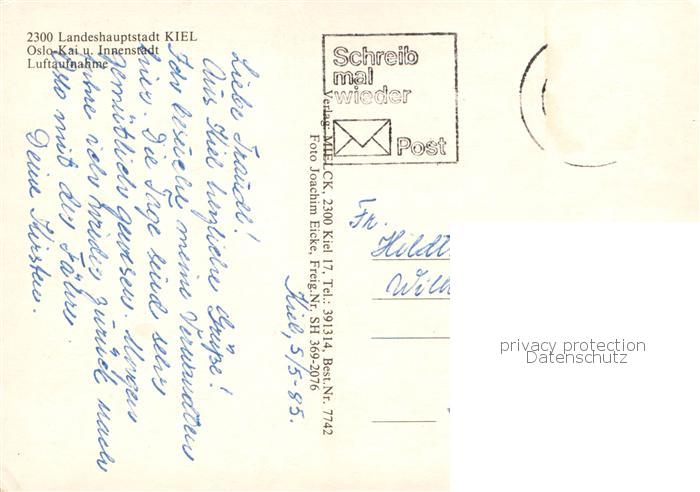 2300 Landeshauptstadt KIEL
Oslo-Kai u. Innenstadt
Luftaufnahme
Schreib
mal
wieder
Post
Verlag: MIELCK, 2300 Kiel 17, Tel.: 391314, Best.Nr. 7742
Foto Joachim Eicke, Freig.Nr. SH 369-2076
Kiel, 5/5-85.
Liebe Traudel!
Aus Kiel herzliche Grüße!
Ich besuche meine Verwandten
hier. Die Tage sind sehr
gemütlich gewesen. Morgen
fahre ich wieder zurück nach
Oslo mit der Fähre.
Deine Kirsten.
Fr.
Hildt
Wild
privacy protection
Datenschutz